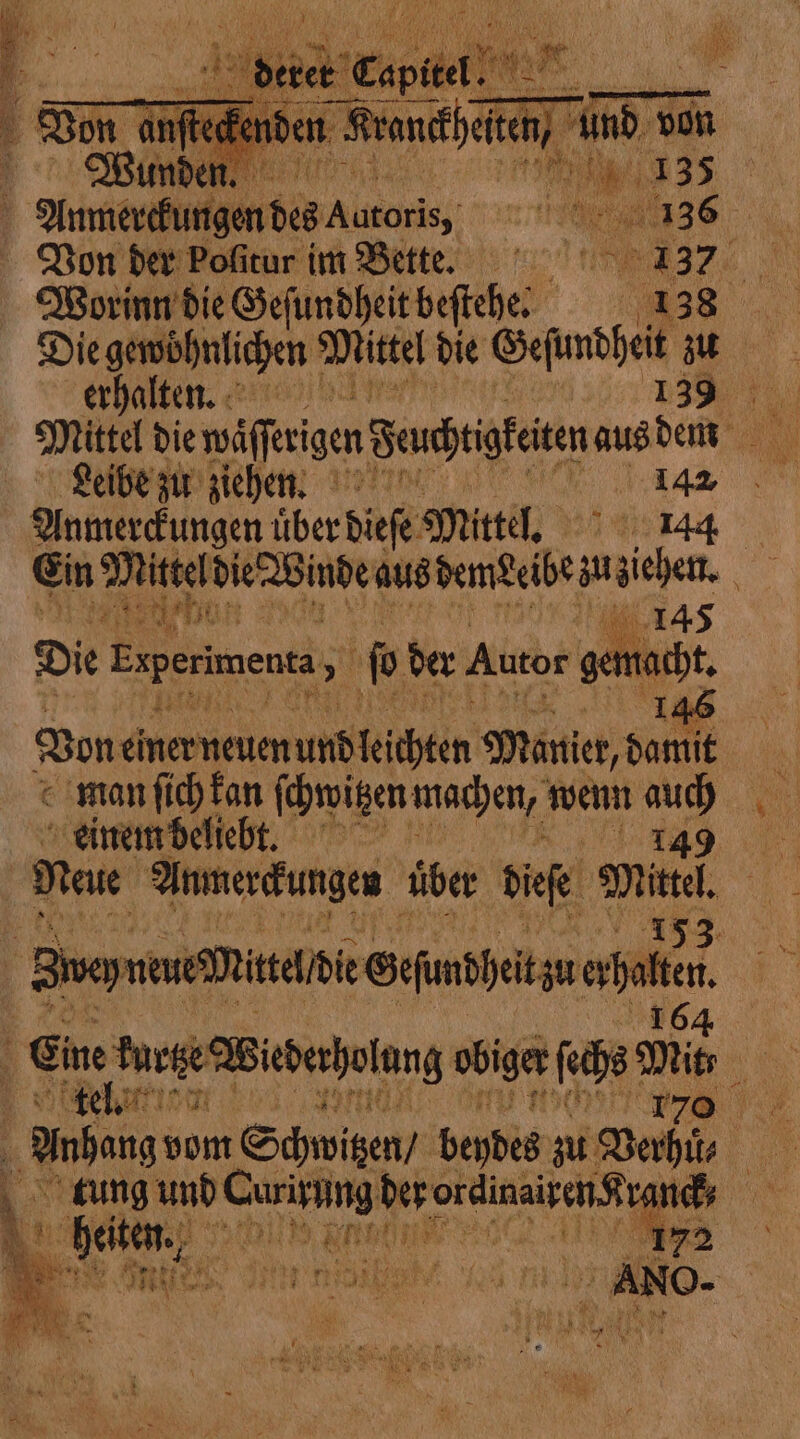 derer Capitel.
Von anſteckenden Kranckheiten, und von
Wunden. 135
Anmerckungen des Autoris, 136
Von der Poſitur im Bette. 137
Worinn die Geſundheit beſtehe. 138
Die gewoͤhnlichen Mittel die Geſundheit zu
erhalten. 139
Mittel die waͤſſerigen Feuchtigkeiten aus dem
Leibe zu ziehen. 142
Anmerckungen uͤber dieſe Mittel. 144
Ein Mittel die Winde aus dem Leibe zu ziehen.
145
Die Experimenta, ſo der Autor gemacht.
146
Von einer neuen und leichten Manier, damit
man ſich kan ſchwitzen machen, wenn auch
einem beliebt. 149
Neue Anmerckungen uͤber dieſe Mittel.
153
Zwey neue Mittel/die Geſundheit zu erhalten.
164
Eine kurtze Wiederholung obiger ſechs Mit⸗
tel. 170
Anhang vom Schwitzen/ beydes zu Verhuͤ⸗
tung und Curirung der ordinairen Kranck⸗
heiten. 172
ANO-